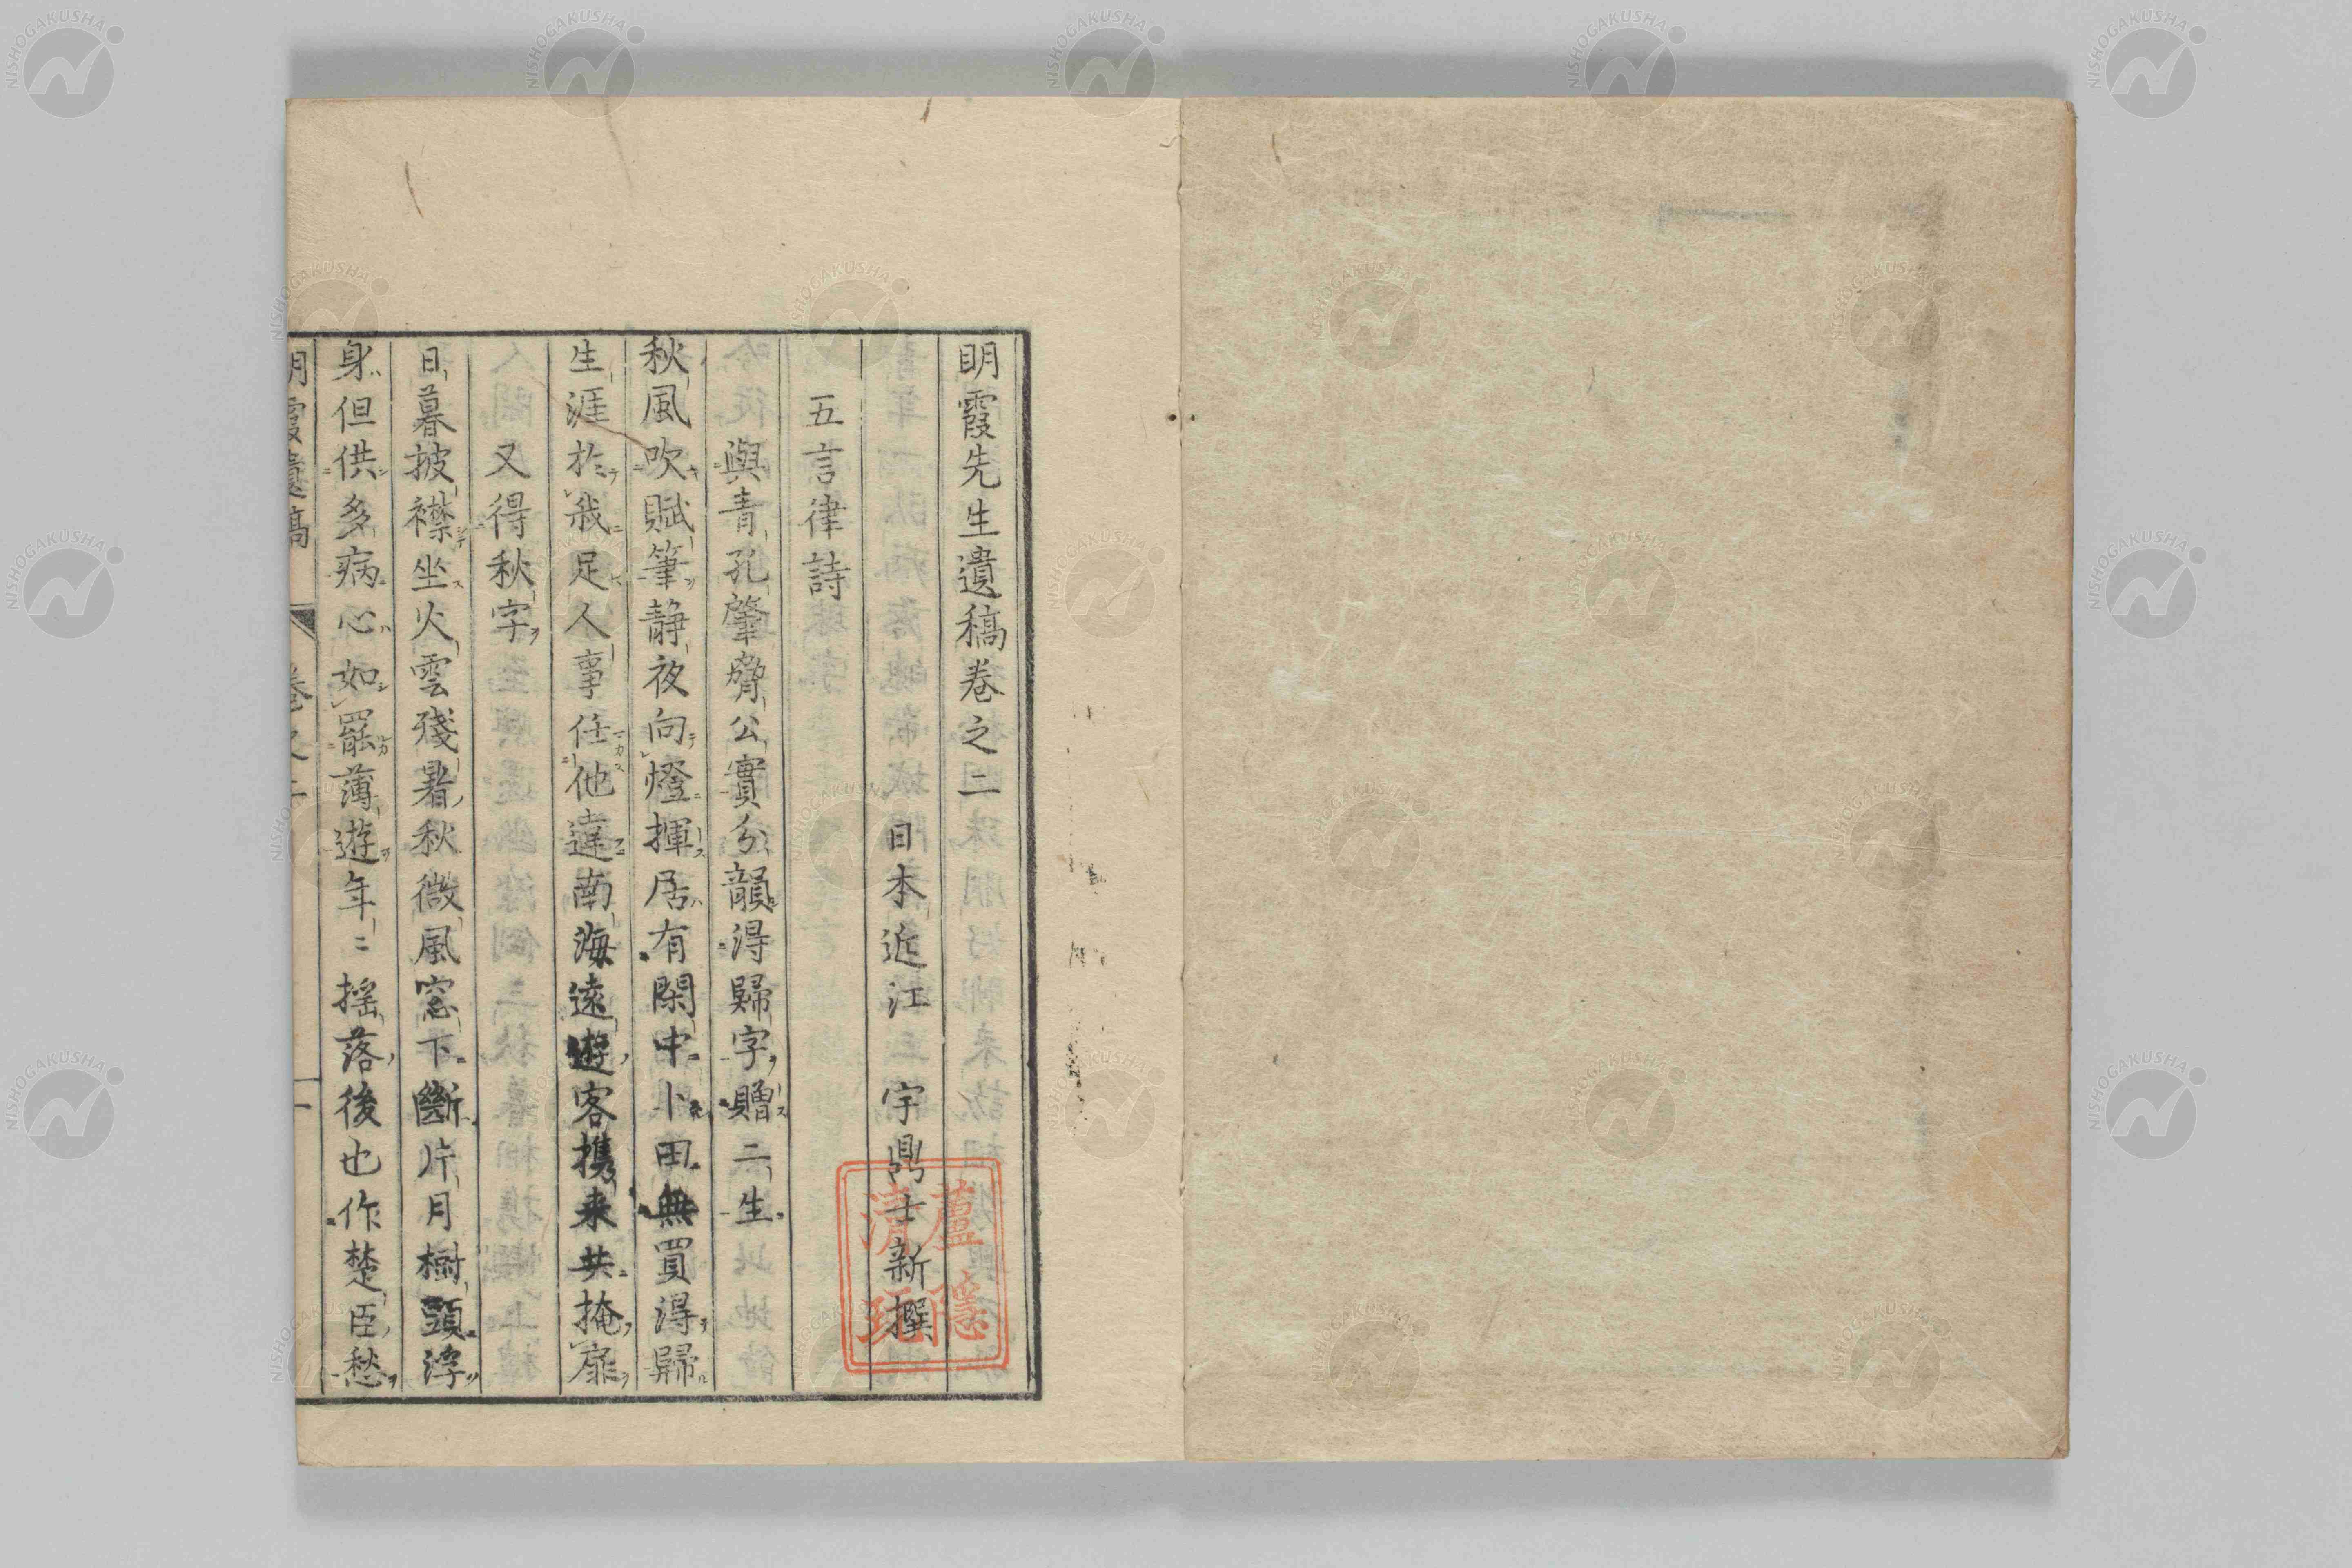 明霞先生遺稿卷之二
日本近江 宇鼎士新撰
五言律詩
與青孔肇脅公實分韻得歸字贈二生
秋風吹賦筆静夜向燈揮居有閑中卜田無買得歸
生涯於我足人事任他違南海遠遊客携来共掩扉
又得秋字
日暮披襟坐火雲殘暑秋微風窓下斷片月樹頭浮
身但供多病心如罷薄遊年〻揺落後也作楚臣愁
明霞遺稿 卷之二 一
蘆隠
NISHOGAKUSHA